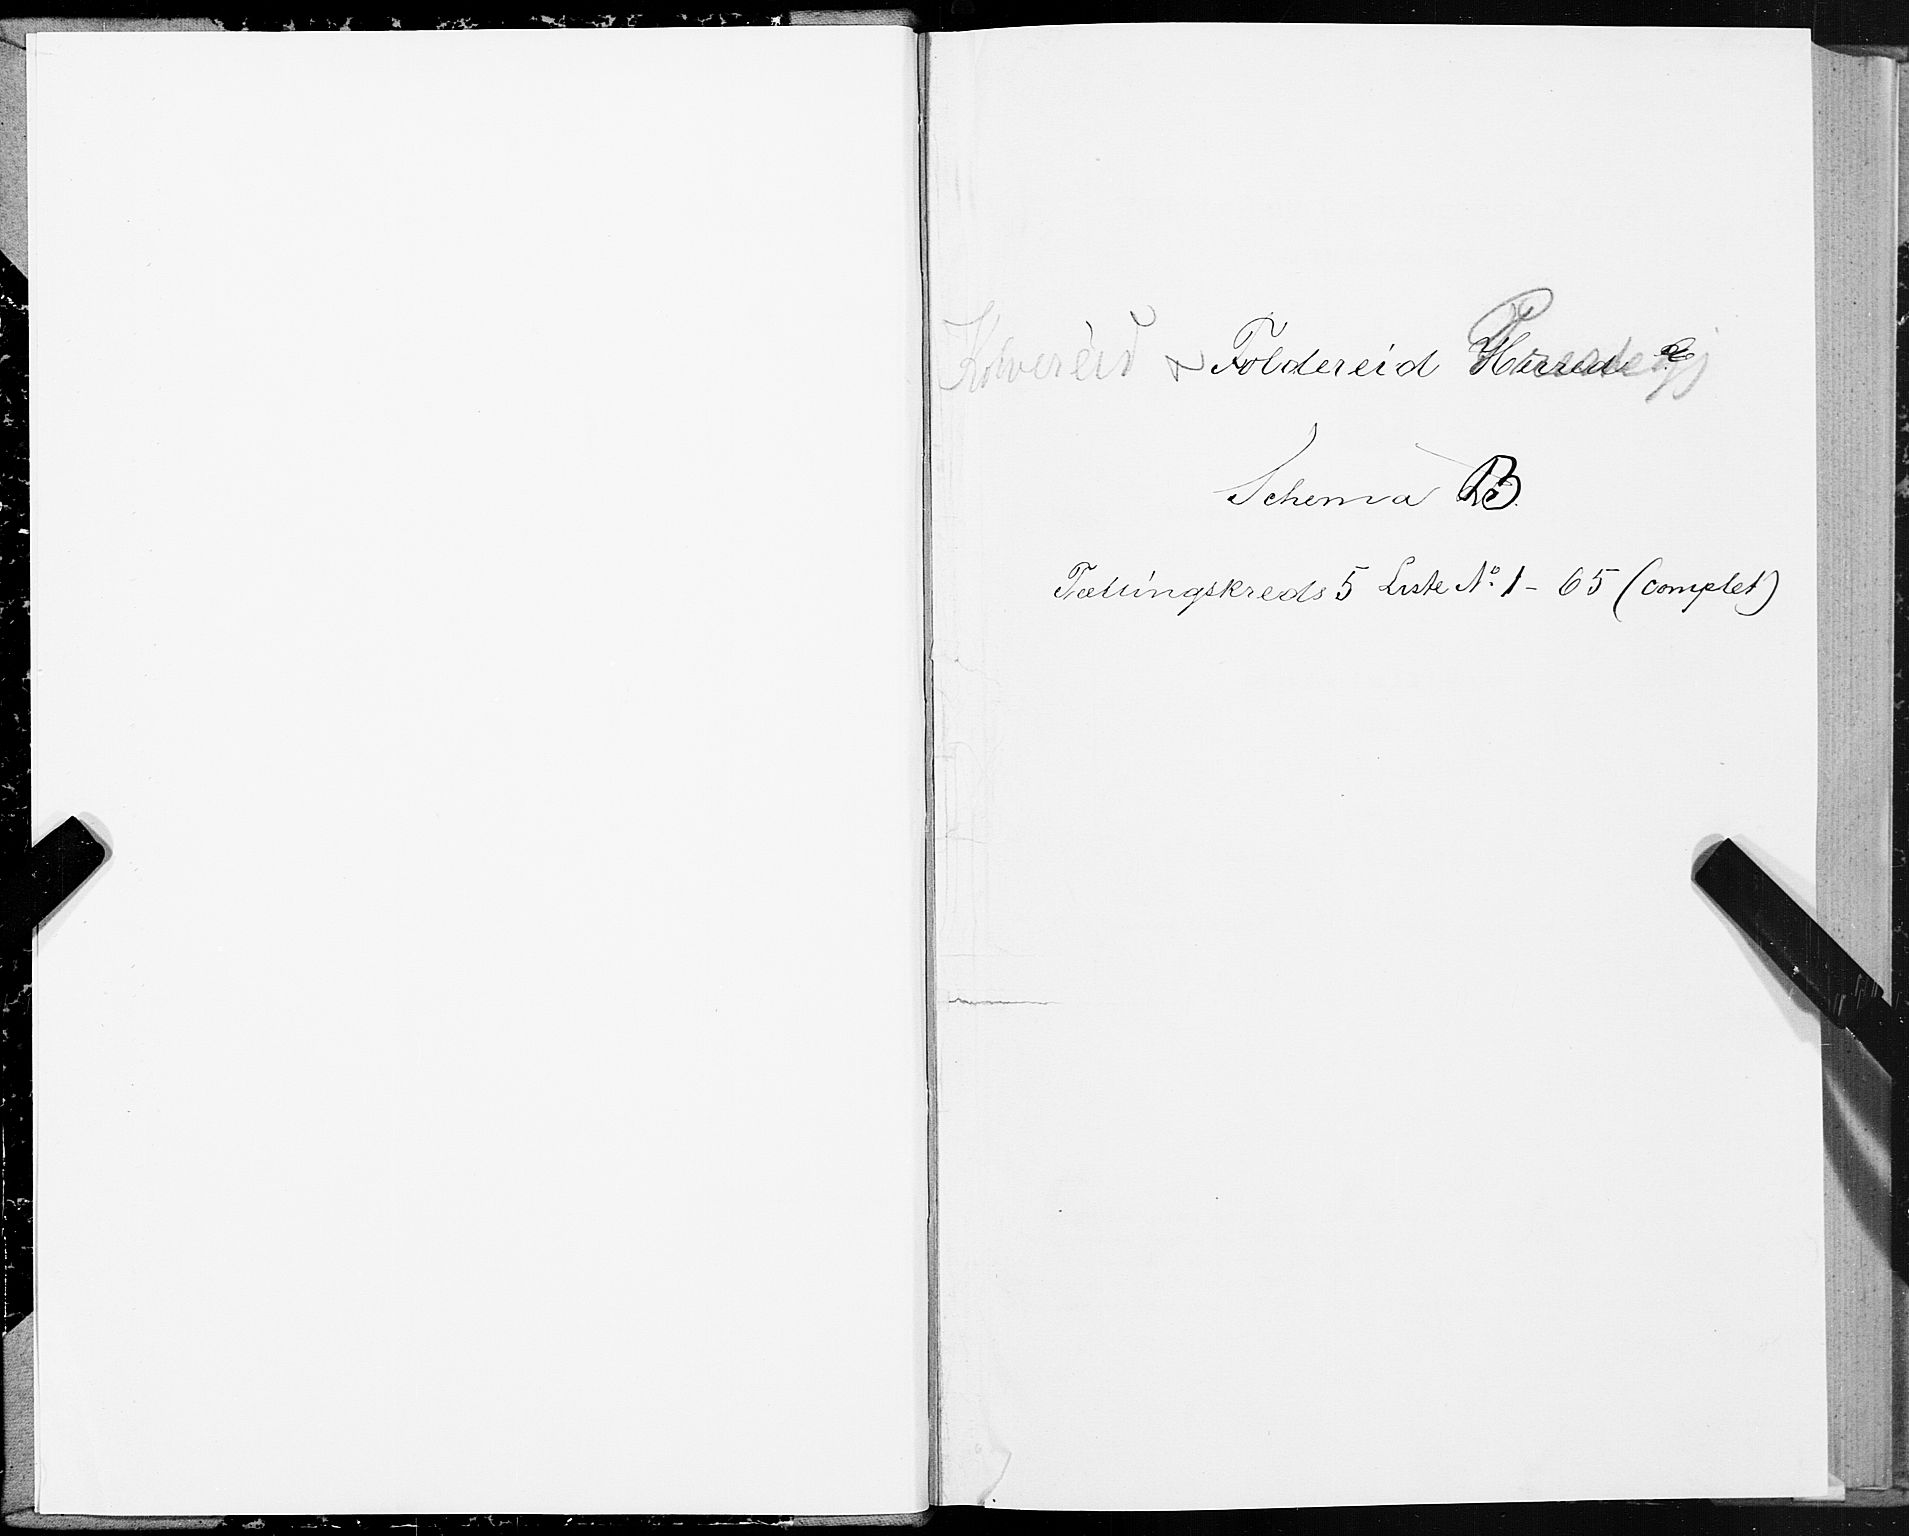 Kolvereid & Foldereid Herred
Schema B.
Tællingskreds 5 Liste No. 1 - 65 (complet)